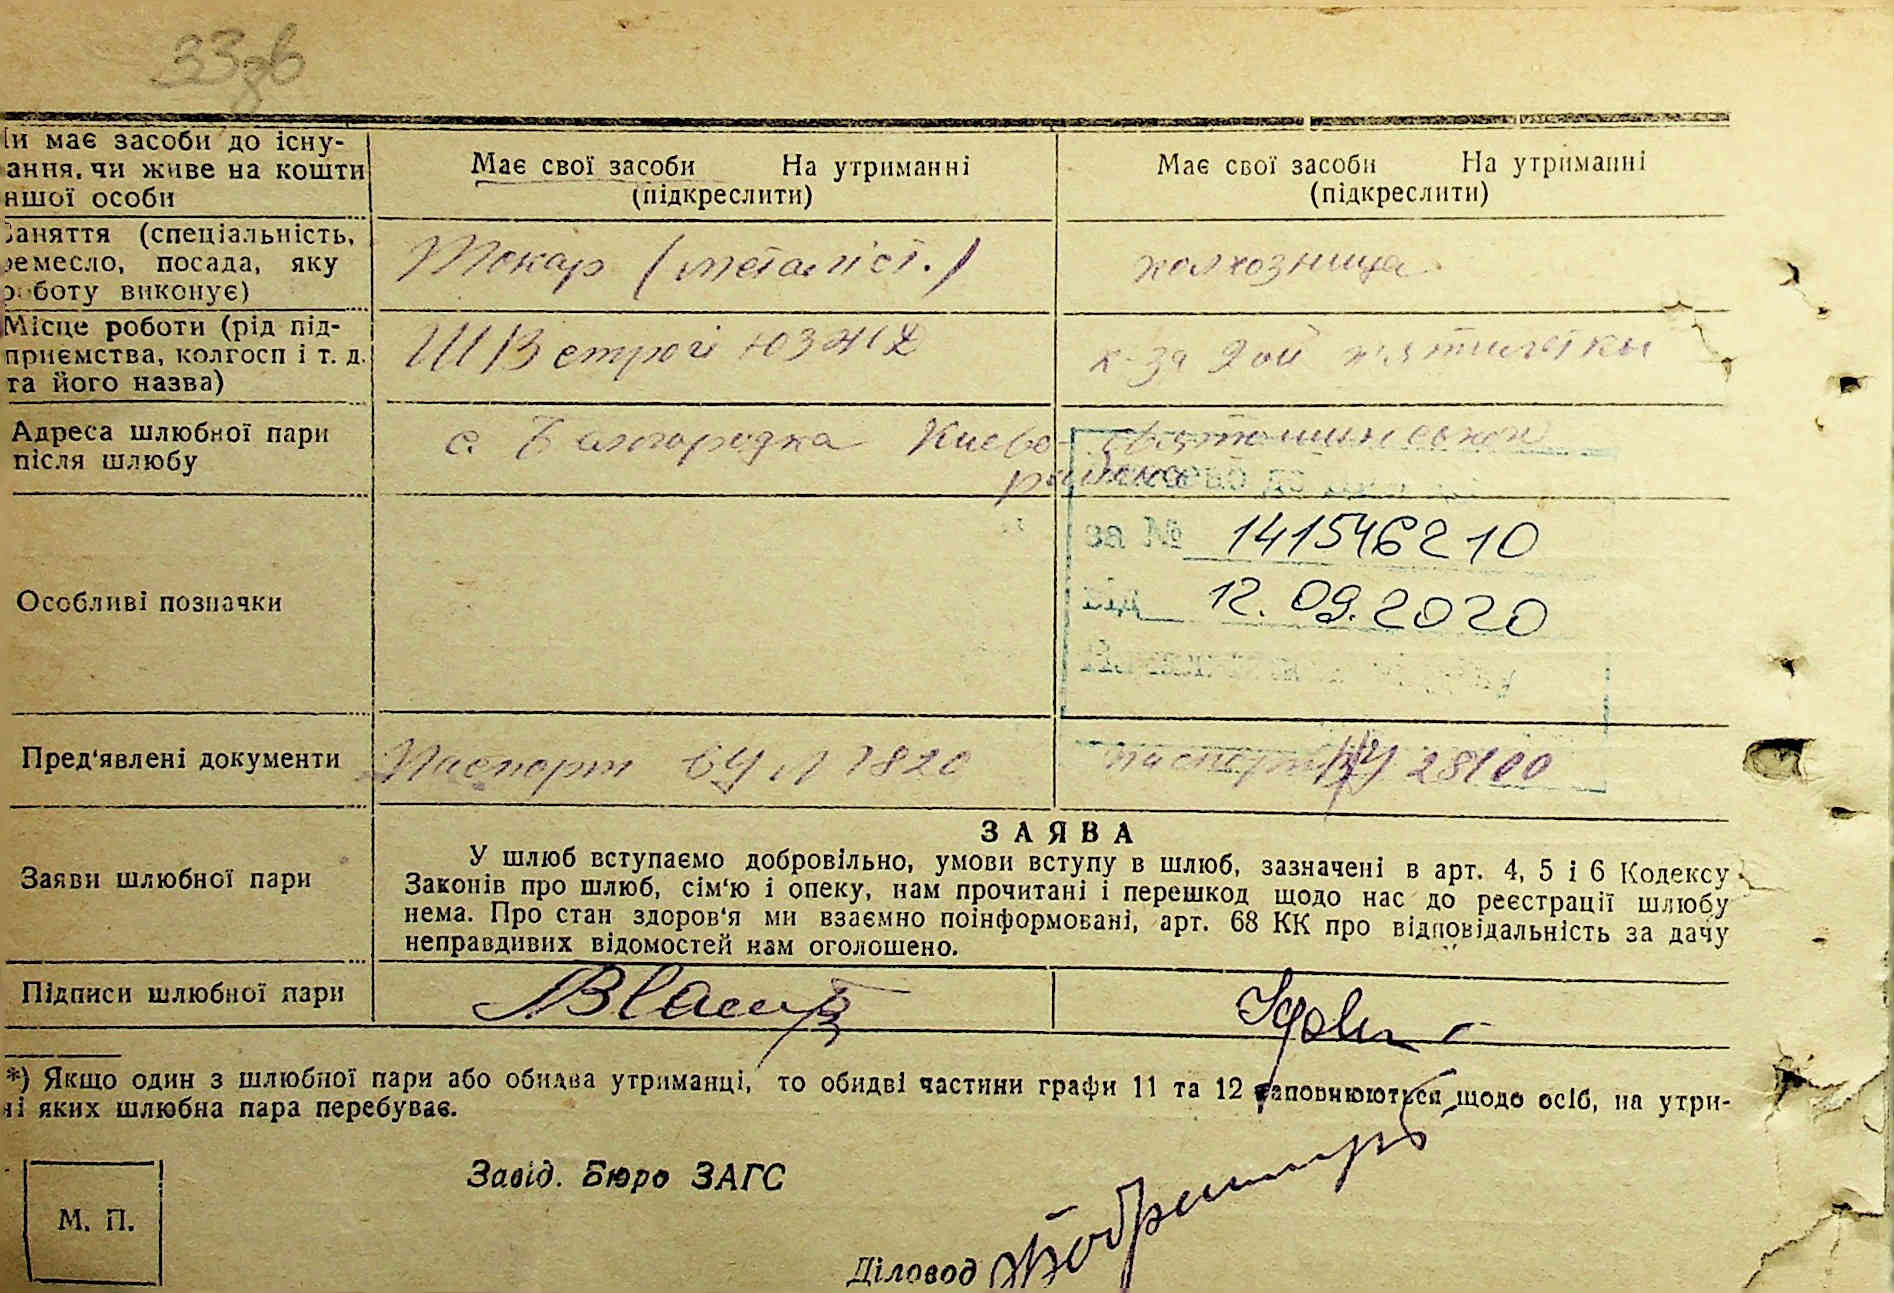 33зв
и має засоби до існу-
ання, чи живе на кошти
ншої особи
Має свої засоби На утриманні
(підкреслити)
Має свої засоби На утриманні
(підкреслити)
аняття (спеціальність,
ремесло, посада, яку
роботу виконує)
Токар (металіст.)
колхозница
Місце роботи (рід під-
приємства, колгосп і т. д.
та його назва)
ЮЗЖД
к-за 2ой пятилетки
Адреса шлюбної пари
після шлюбу
с. Белгородка Киево-Святошинського
района
Особливі позначки
за № 141546210
від 12.09.2020
Пред'явлені документи
Паспорт 7820
паспорт 28100
Заяви шлюбної пари
ЗАЯВА
У шлюб вступаємо добровільно, умови вступу в шлюб, зазначені в арт. 4, 5 і 6 Кодексу
Законів про шлюб, сім'ю і опеку, нам прочитані і перешкод щодо нас до реєстрації шлюбу
нема. Про стан здоров'я ми взаємно поінформовані, арт. 68 КК про відповідальність за дачу
неправдивих відомостей нам оголошено.
Підписи шлюбної пари
*) Якщо один з шлюбної пари або обидва утриманці, то обидві частини графи 11 та 12 заповнюються щодо осіб, на утри-
ні яких шлюбна пара перебуває.
Завід. Бюро ЗАГС
М. П.
Діловод